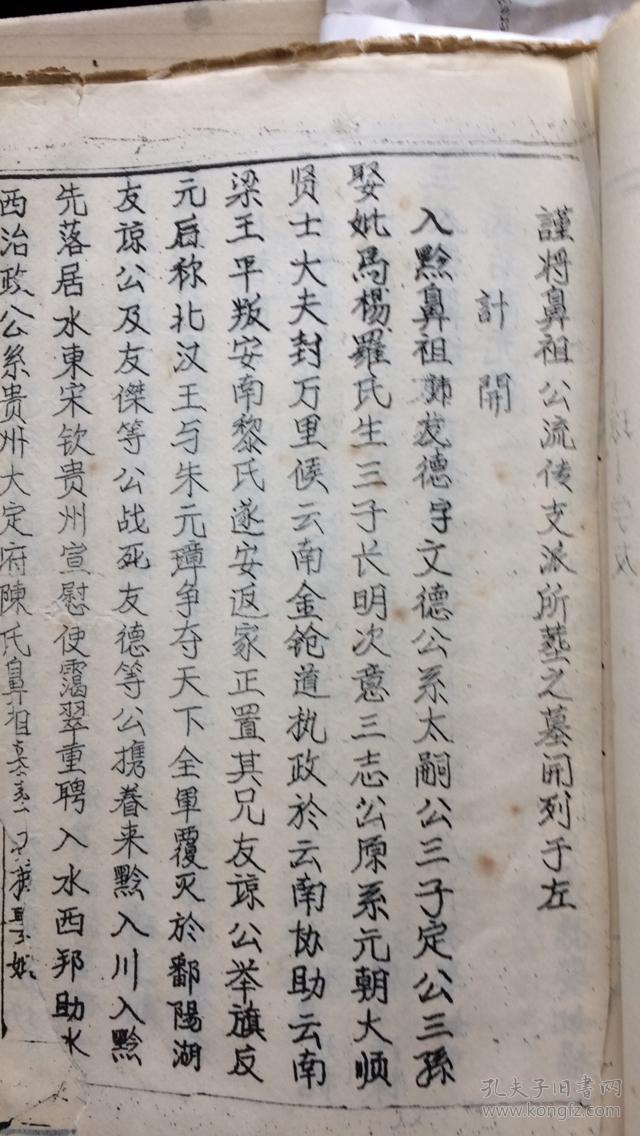 謹将鼻祖公流传支派所塟之墓開列于左
計開
入黔鼻祖友德字文德公系太嗣公三子定公三孫
娶妣馬楊羅氏生三子长明次意三志公原系元朝大顺
贤士大夫封万里候云南金铯道执政於云南协助云南
梁王平叛安南黎氏遂安返家正置其兄友谅公举旗反
元后称北汉王与朱元璋争夺天下全軍覆灭於鄱陽湖
友谅公及友傑等公战死友德等公攜眷来黔入川入黔
先落居水東宋钦贵州宣慰使靄翠重聘入水西邦助水
西治政公系贵州大定府陳氏鼻祖
孔夫子旧书网
www.kongfz.com